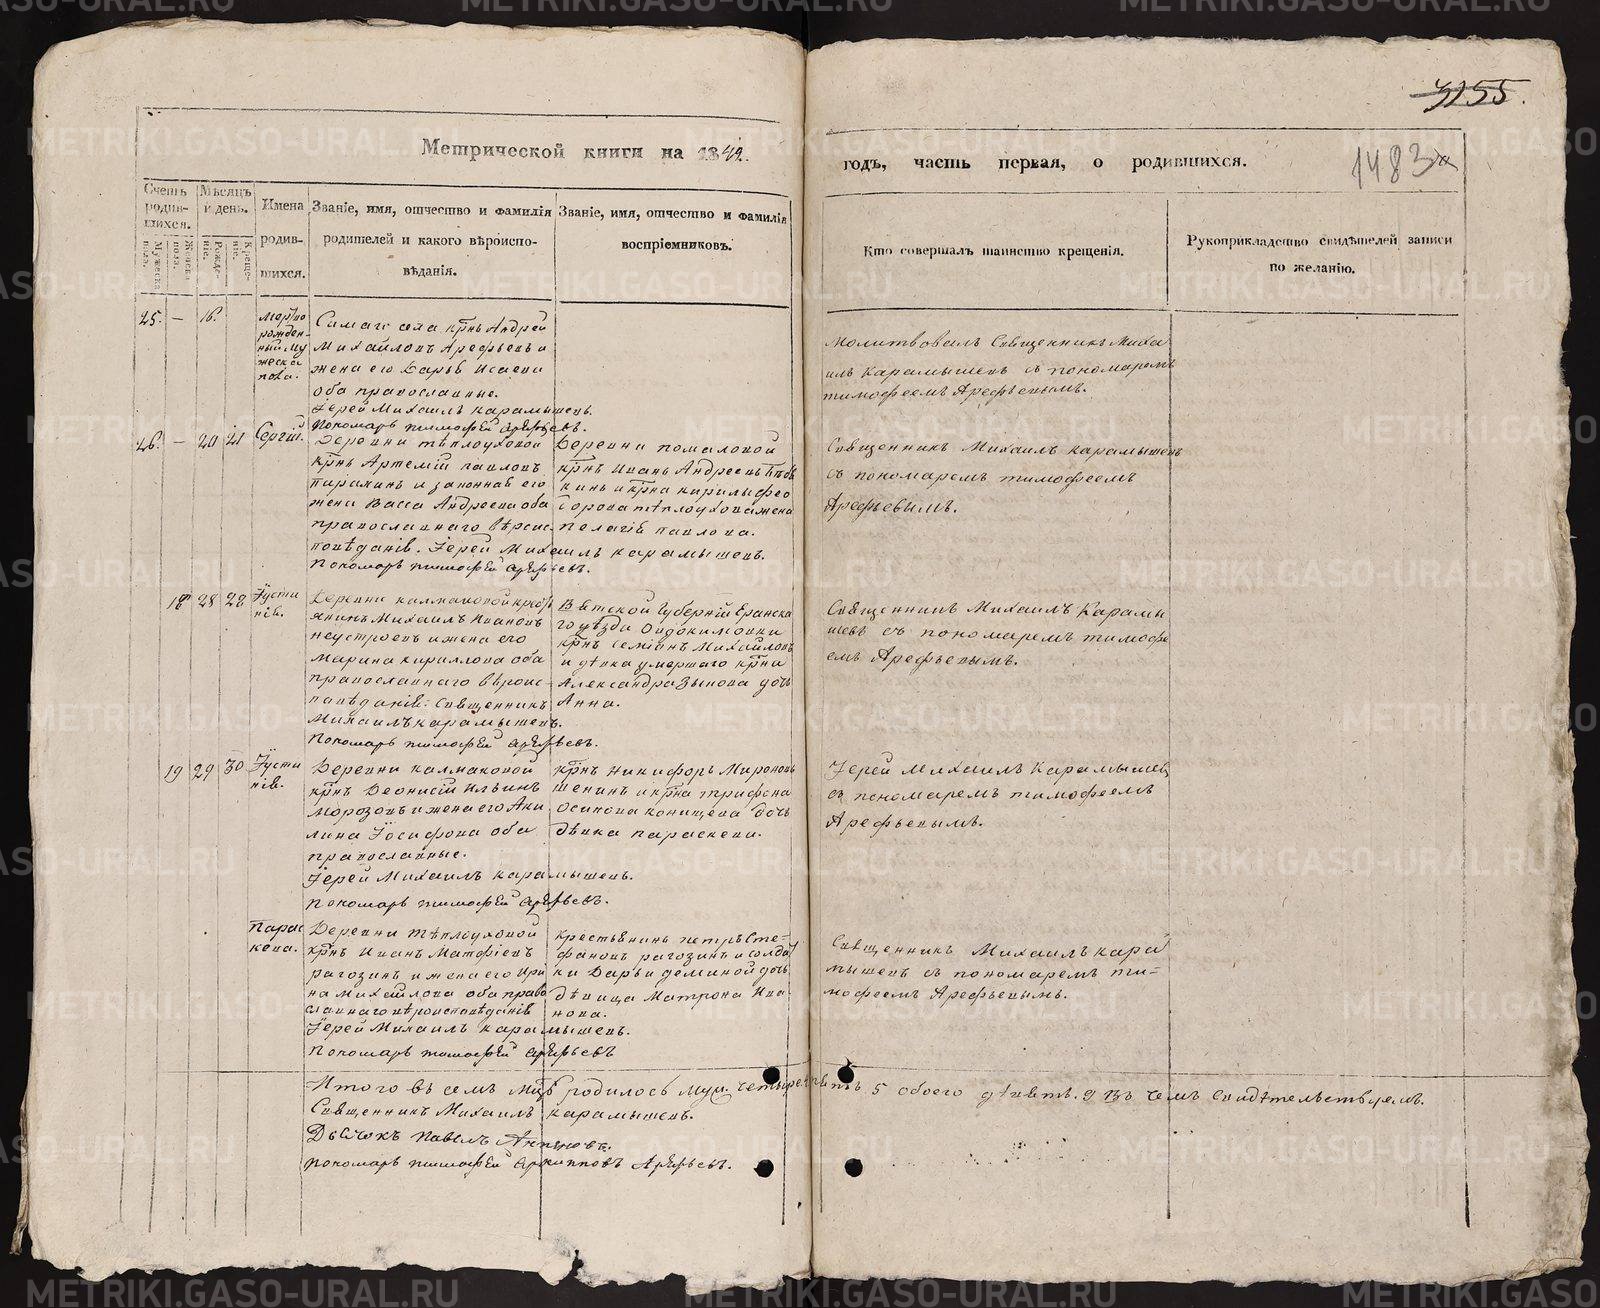 3155.
Метрической книги на 1849.
годъ, часть первая, о родившихся.
1483
Счетъ родив-шихся.
Мѣсяцъ и день.
Имена родив-шихся.
Званіе, имя, отчество и фамилія родителей и какого вѣроиспо-вѣданія.
Званіе, имя, отчество и фамилія воспріемниковъ.
Кто совершалъ таинство крещенія.
Рукоприкладство свидѣтелей записи по желанію.
Мужеска пола.
Женска пола.
Рожде-ніе.
Креще-ніе.
25. — 16.
рожден-
ный му
жеска
пола.
Самаго села крнъ Андрей
Михайловъ Арефьевъ и
жена его Дарья Исаева
оба православные.
Іерей Михаилъ Карамышевъ.
Пономарь Тимофей Арефьевъ.
Молитвовалъ Священникъ Миха
илъ Карамышевъ съ пономаремъ
Тимофеемъ Арефьевымъ.
26. — 20 21
Сергій.
Деревни Тѣплоуховой
крнъ Артемій Павловъ
и законная его
жена Васса Андреева оба
православнаго вѣроис-
повѣданія. Іерей Михаилъ Карамышевъ.
Пономарь Тимофей Арефьевъ.
Деревни
крнъ Иванъ Андреевъ
и крна Кирилы Фео
дорова Тѣплоухова жена
Пелагія Павлова.
Священникъ Михаилъ Карамышевъ
съ пономаремъ Тимофеемъ
Арефьевымъ.
18 28 28
Іусти
нія.
Деревни Калмаковой крестъ
янинъ Михаилъ Ивановъ
Неустроевъ и жена его
Марина Кириллова оба
православнаго вѣроис-
повѣданія. Священникъ
Михаилъ Карамышевъ.
Пономарь Тимофей Арефьевъ.
Вятской Губерніи Еранска
го уѣзда
крнъ Семіанъ Михайловъ
и дѣвка умершаго крна
Александра Зыкова дочь
Анна.
Священникъ Михаилъ Карамы
шевъ съ пономаремъ Тимофе
емъ Арефьевымъ.
19 29 30
Іусти
нія.
Деревни Калмаковой
крнъ Деонисій Ильинъ
Морозовъ и жена его Аки
лина Іосифова оба
православные.
Іерей Михаилъ Карамышевъ.
Пономарь Тимофей Арефьевъ.
крнъ Никифоръ Мироновъ
и крна Трифона
Осипова Конищева дочь
дѣвка Параскева.
Іерей Михаилъ Карамышевъ
съ пономаремъ Тимофеемъ
Арефьевымъ.
Парас
кева.
Деревни Тѣплоуховой
крнъ Иванъ Матфіевъ
Рагозинъ и жена его Ири
на Михайлова оба право
славнаго вѣроисповѣданія
Іерей Михаилъ Карамышевъ.
Пономарь Тимофей Арефьевъ
крестьянинъ Петръ Сте-
фановъ Рагозинъ и солдат
ки Дарьи Деминой дочь
дѣвица Матрона Ива
нова.
Священникъ Михаилъ Кара
мышевъ съ пономаремъ Ти-
мофеемъ Арефьевымъ.
Итого въ семъ мцѣ родилось муж. четыре 5 обоего девять. 9 въ чемъ свидѣтельствуемъ.
Священникъ Михаилъ Карамышевъ.
Дьячокъ Павелъ
Пономарь Тимофей Архиповъ Арефьевъ.
METRIKI.GASO-URAL.RU